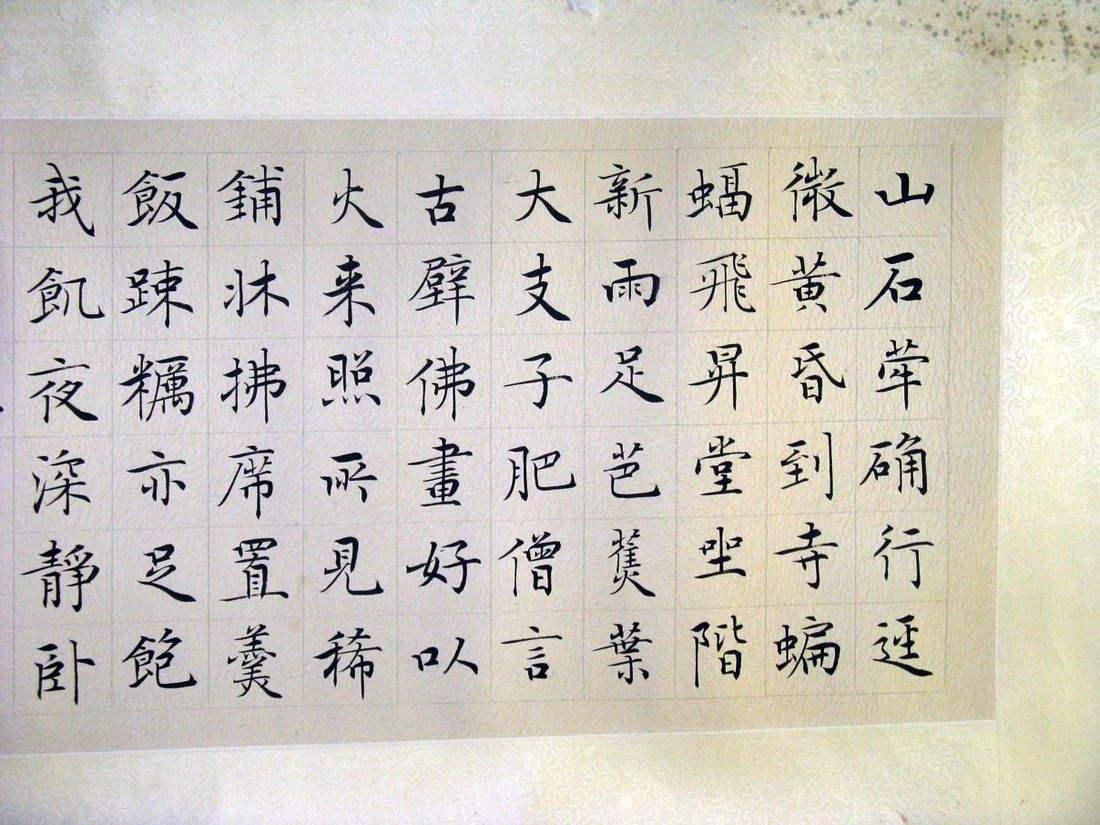 山石荦确行逕
微黄昏到寺蝙
蝠飛昇堂坐階
新雨足芭蕉葉
大支子肥僧言
古壁佛畫好以
火来照所見稀
鋪牀拂席置羹
飯踈糲亦足飽
我飢夜深靜卧